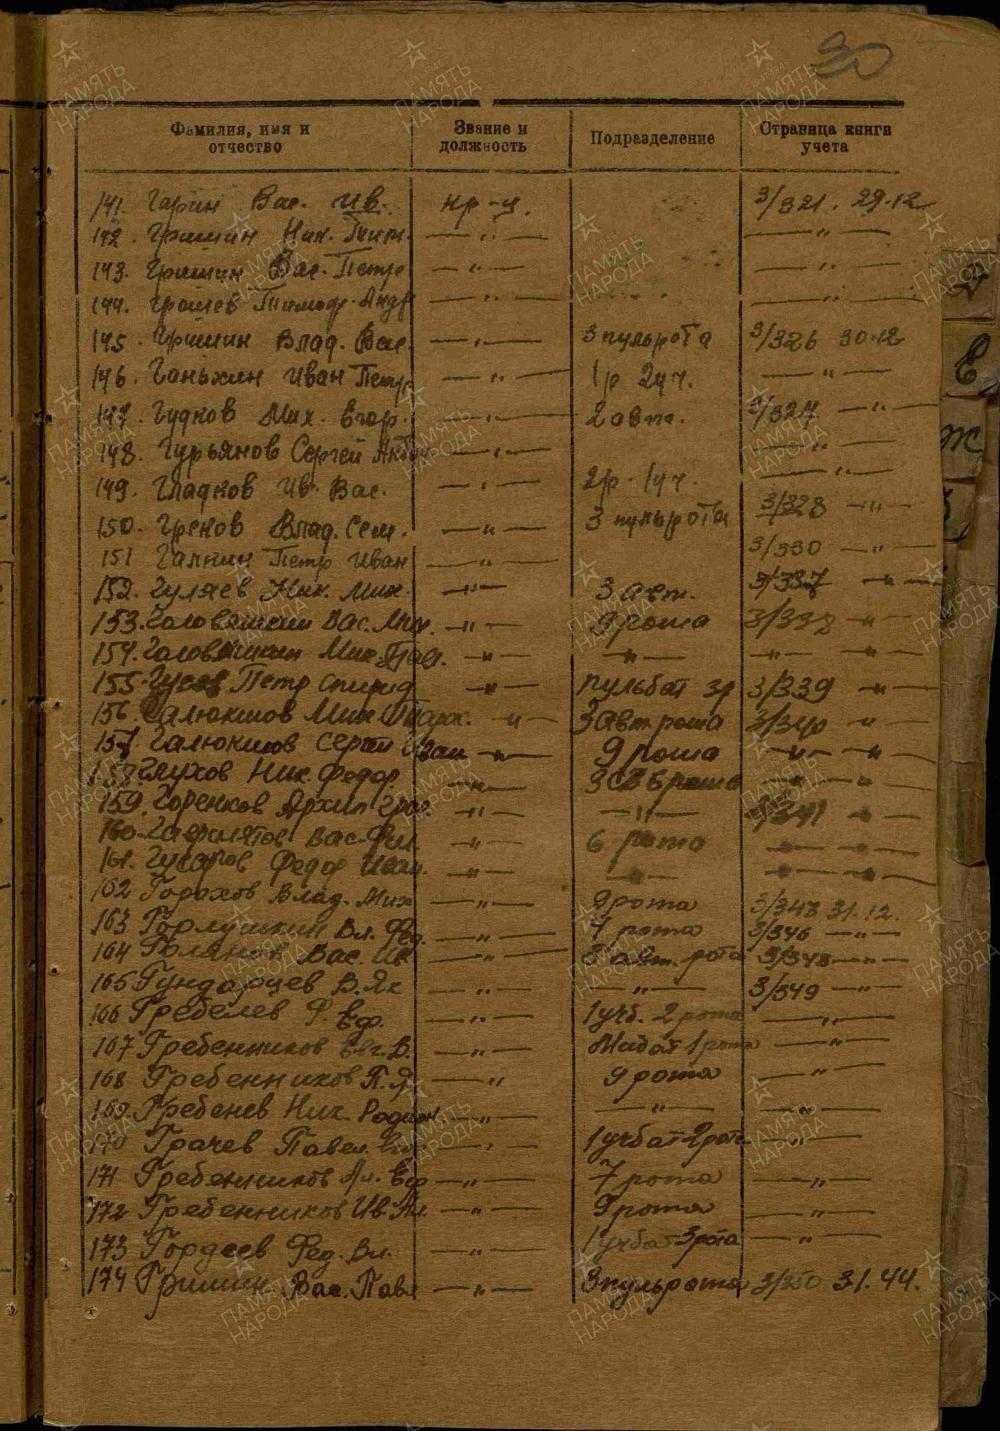 30
Фамилия, имя и отчество Звание и должность Подразделение Страница книги учета
141. Гарин Вас. Ив. кр-ц. 3/321. 29.12
142. Гришин Ник. — " — — " —
143. Гришин Вас. Петр — " — — " —
144. Грошев Тимоф. Андр — " — — " —
145. Гришин Влад. Вас. — " — 3 пульрота 3/326 30.12
146. Ганькин Иван Петр — " — 1р 2уч. — " —
147. Гудков Мих. Егор. — " — 2 авт. 3/327 — " —
148. Гурьянов Сергей — " — — " —
149. Гладков Ив. Вас. — " — 2р. 1уч. — " —
150. Греков Влад. Сем. — " — 3 пульрота 3/328 — " —
151 Галкин Петр Иван — " — 3/330 — " —
152. Гуляев Ник. Мих. — " — 3 авт. 3/337 — " —
153. Головашкин Вас. Мих. — " — 9 рота 3/338 — " —
154. Мих. Пав. — " — — " — — " — "
155. Гусев Петр Спирид — " — пульбат 3р 3/339 — " —
156. Галюкшов Мих. — " — 3 авт рота 3/340 — " —
157. Галюкшов Сергей Иван — " — 9 рота — " — "
158. Глухов Ник. Федор. — " — рота — " — "
159. Горенков Архип Григ — " — — " — 3/341 — " —
160. Вас. Фил. — " — 6 рота — " — " —
161. Гусаров Федор Иван. — " — — " — — " — " —
162 Горохов Влад. Мих — " — 9 рота 3/343 31.12.
163 Гормушкин Вл. Фед. — " — 7 рота 3/346 — " —
164 Голянов Вас. Ив — " — авт. рота 3/348 — " —
165 Гундарцев В. Як — " — — " — 3/349 — " —
166 Гребелев Ф. Еф. — " — 1 учб. 2 рота — " —
167 Гребенников Евг. В. — " — 1 рота — " —
168 Гребенников П. Я. — " — 9 рота — " —
169. Гребенев Ник. Родион. — " — — " — — " —
170 Грачев Павел — " — 1 учбат 2 рота — " —
171 Гребенников Ал. Еф — " — 7 рота — " —
172 Гребенников Ив. Ал. — " — 9 рота — " —
173 Гордеев Фед. Вл. — " — 1 учбат 3 рота — " —
174 Гришин Вас. Павл — " — 3 пульрота 3/350 31.44.
Д
Е
Ж
ПАМЯТЬ НАРОДА